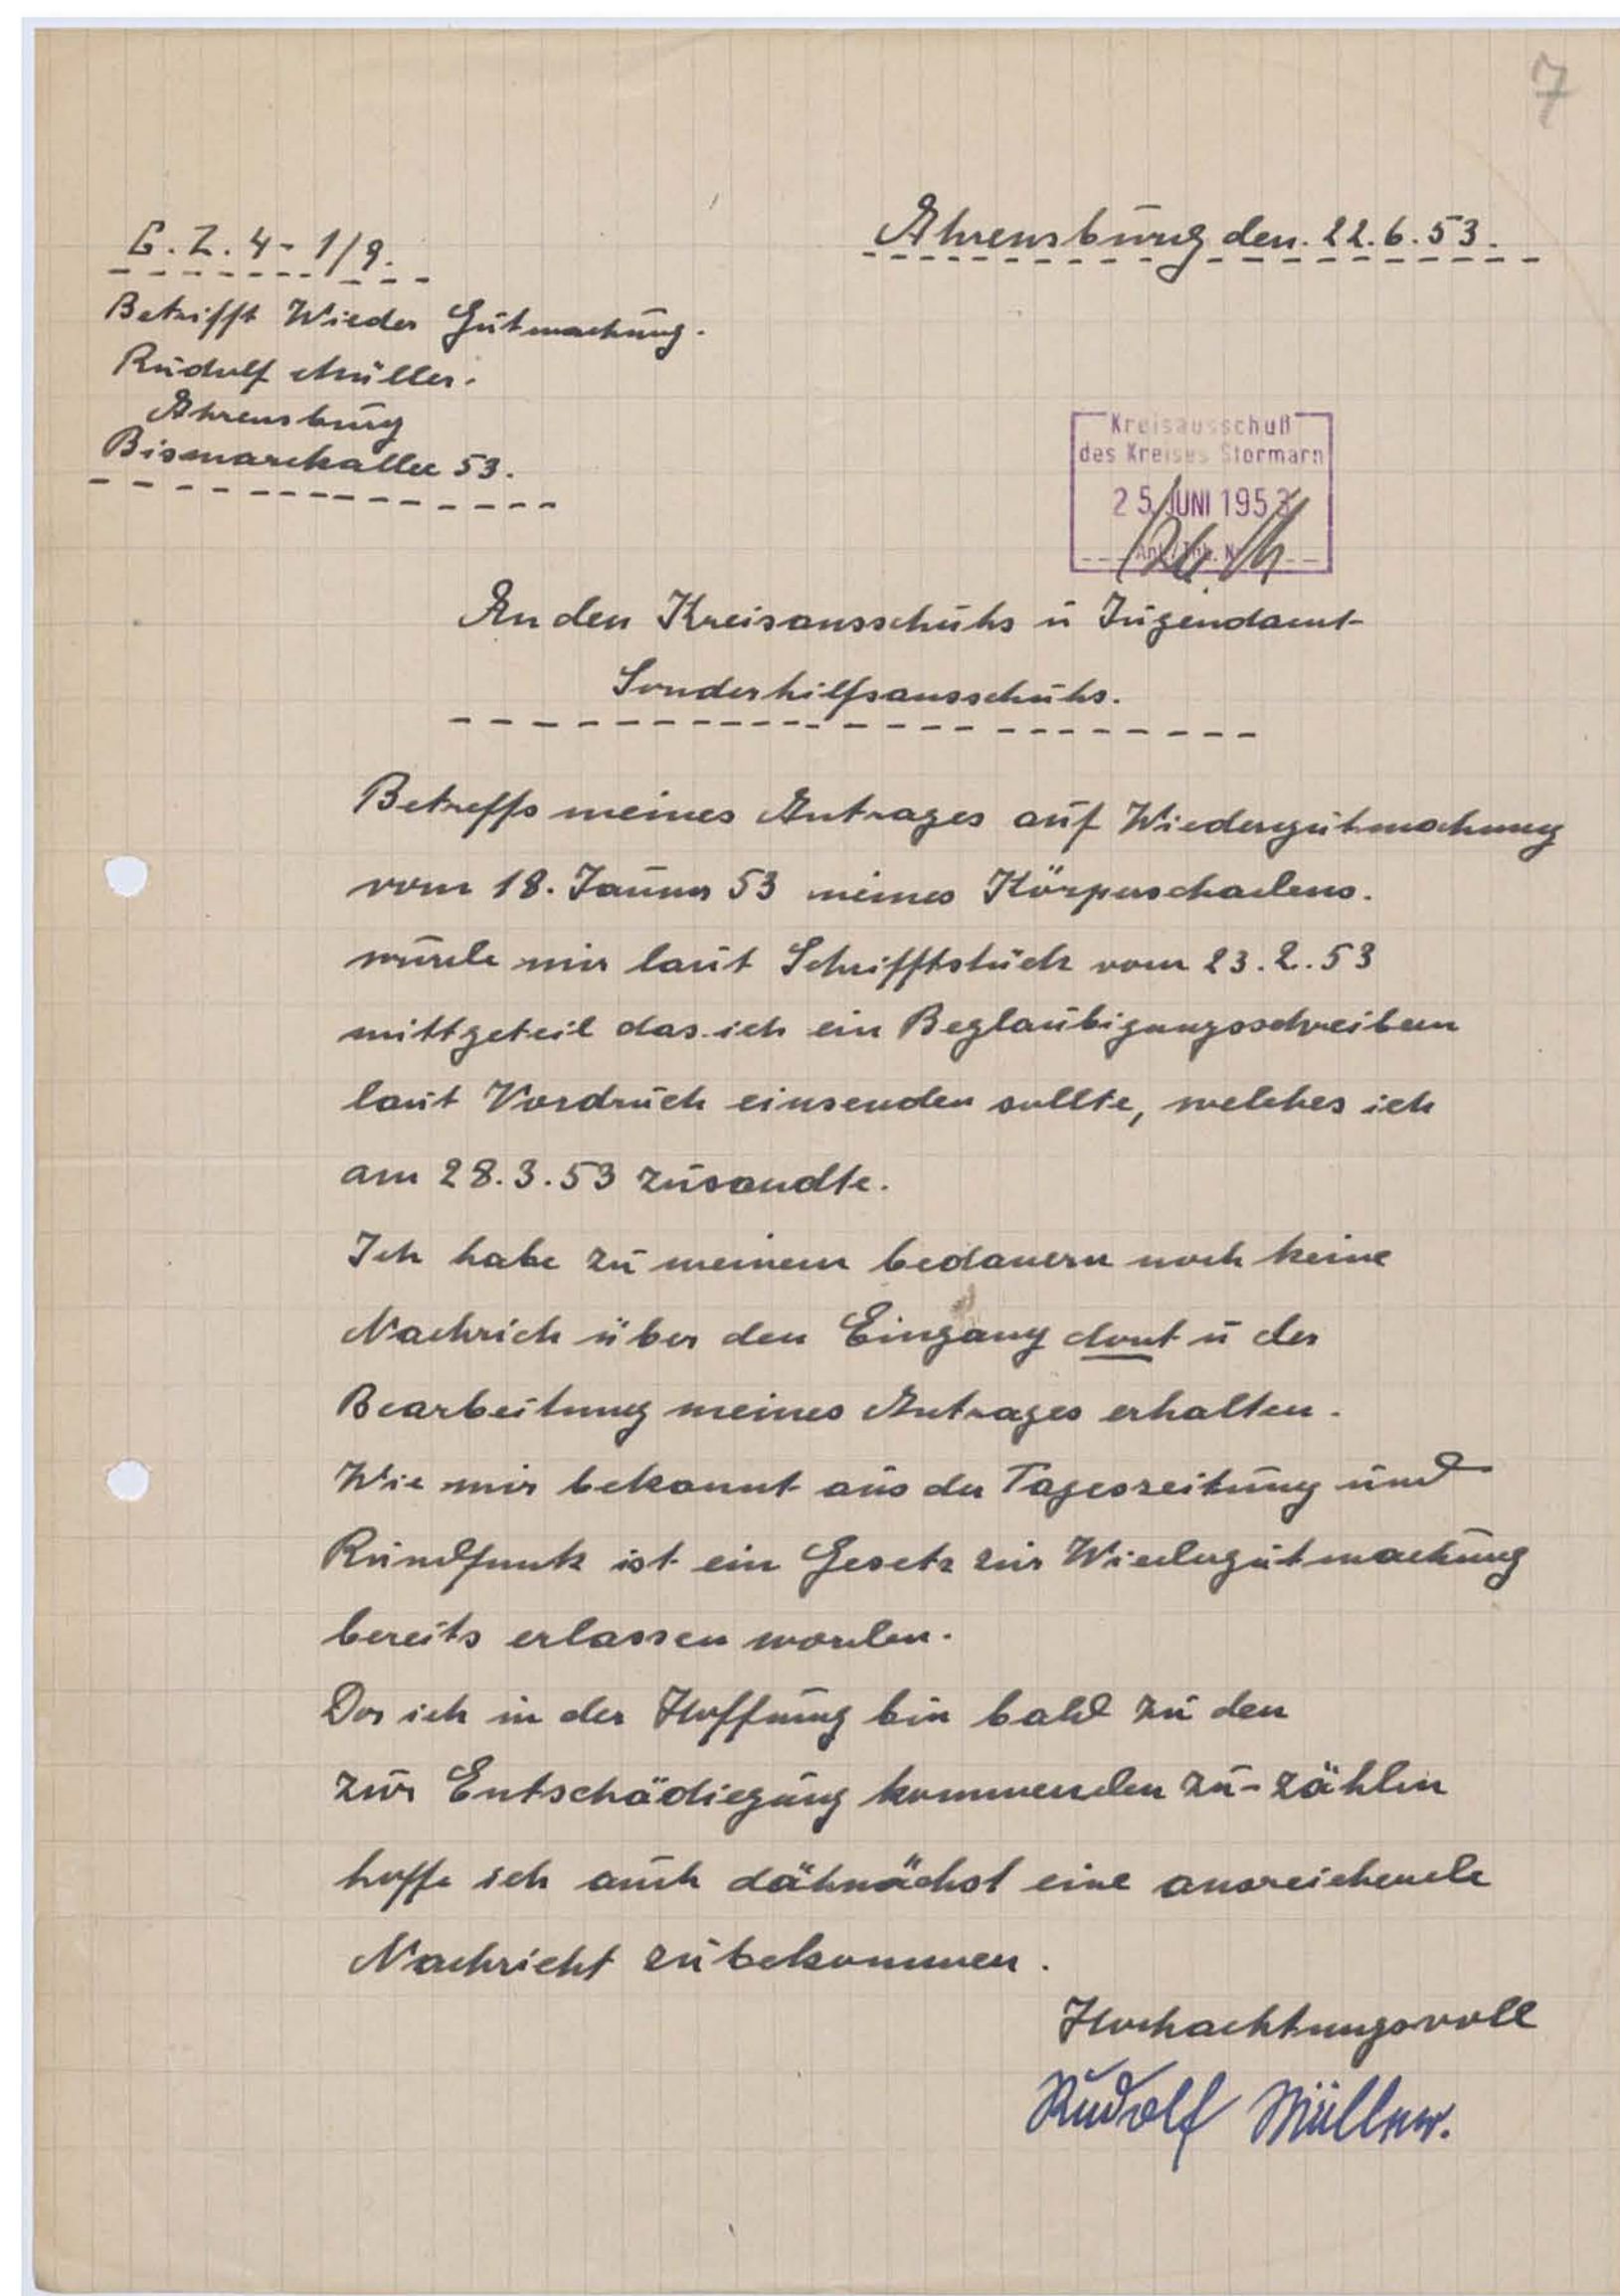 7
G.Z. 4-1/9.
Ahrensburg den. 22.6.53.
Betrifft Wieder Gutmachung.
Rudolf Müller.
Ahrensburg
Bismarckallee 53.
Kreisausschuß
des Kreises Stormarn
25. JUNI 1953
An den Kreisausschuhs u Jugendamt
Sonderhilfsausschuhs.
Betreffs meines Antrages auf Wiedergutmachung
vom 18. Januar 53 meines Körperschadens.
wurde mir laut Schrifftstück vom 23.2.53
mittgeteil das ich ein Beglaubigungsschreiben
laut Vordruck einsenden sollte, welches ich
am 28.3.53 zusandte.
Ich habe zu meinem bedauern noch keine
Nachrich über den Eingang dort u der
Bearbeitung meines Antrages erhalten.
Wie mir bekannt aus der Tageszeitung und
Rundfunk ist ein Gesetz zur Wiedergutmachung
bereits erlassen worden.
Da ich in der Hoffnung bin bald zu den
zur Entschädiegung kommenden zu-zählen
hoffe ich auch dähnächst eine ausreichende
Nachricht zubekommen.
Hochachtungsvoll
Rudolf Müller.